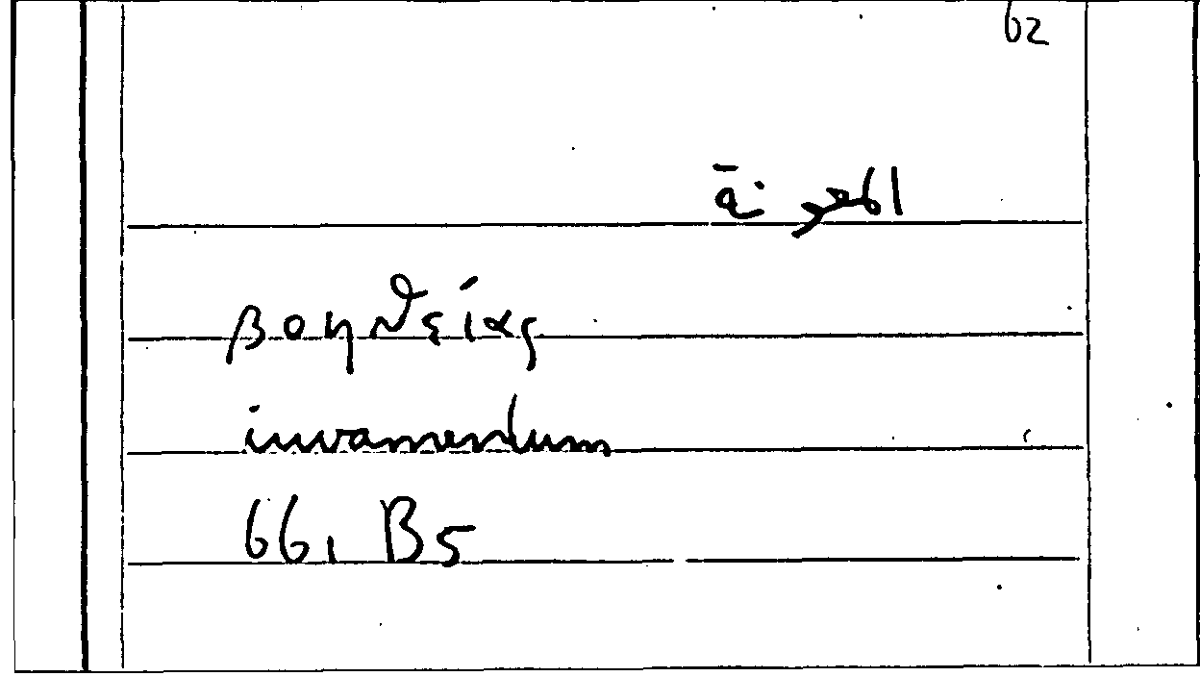 62
المعونة
βοηθείας
iuvamentum
66, B5